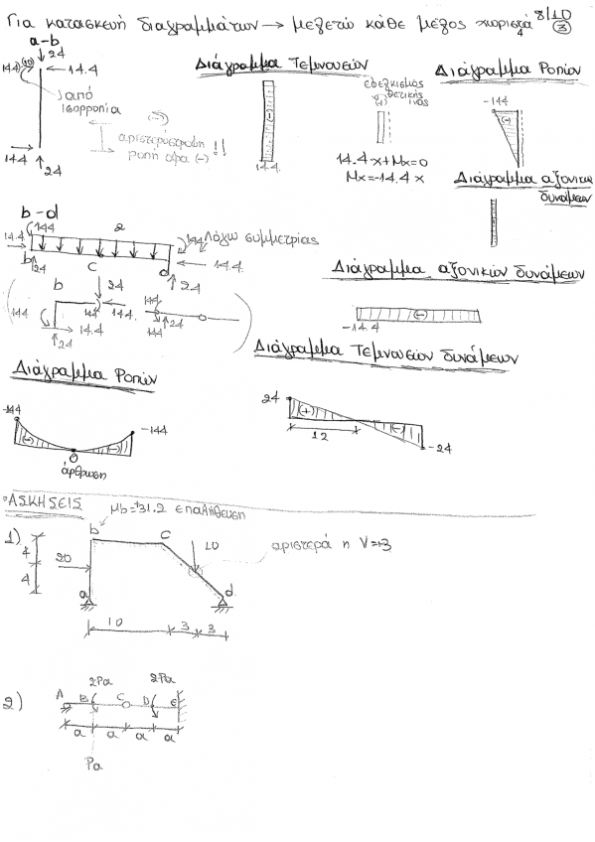 Για κατασκευή διαγραμμάτων → μελετώ κάθε μέλος χωριστά
8/10
3
a-b
24
144
14.4
από
ισορροπία
αριστερόστροφη
ροπή άρα (-) !!
14.4
24
Διάγραμμα Τεμνουσών
(-)
14.4
εφελκυσμός
θετικής
ινός
14.4x+Mx=0
Mx=-14.4x
Διάγραμμα Ροπών
-144
Διάγραμμα αξονικών
δυνάμεων
b-d
144
2
144
Λόγω συμμετρίας
14.4
14.4
b
24
c
d
24
b
24
144
14.4
14.4
24
144
24
144
Διάγραμμα αξονικών δυνάμεων
(-)
-14.4
Διάγραμμα Τεμνουσών δυνάμεων
24
(+)
(-)
12
-24
Διάγραμμα Ροπών
-144
(-)
(-)
-144
0
άρθρωση
ΑΣΚΗΣΕΙΣ
Mb=+31.2 επαλήθευση
1)
b
c
10
αριστερά η V=+3
4
4
20
a
d
10
3
3
2)
2Pa
2Pa
A
B
C
D
E
a
a
a
a
Pa